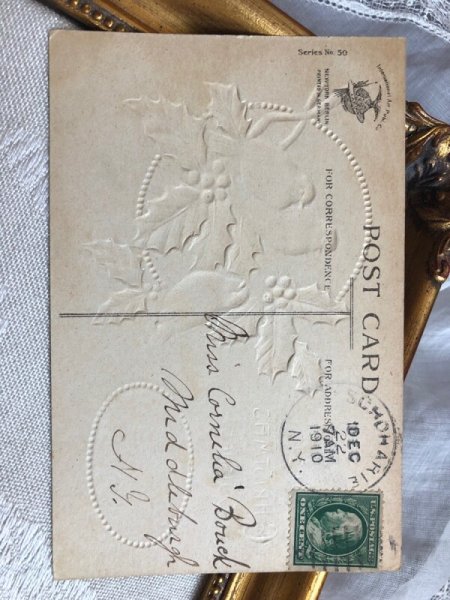 Series No. 50
International Art Publ. Co.
NEW YORK BERLIN
POST CARD
FOR CORRESPONDENCE
FOR ADDRESS
SCHOHARIE
DEC
22
7 AM
1910
N.Y.
U.S. POSTAGE
ONE CENT
Miss Cornelia Bouck
Middleburgh
N.Y.